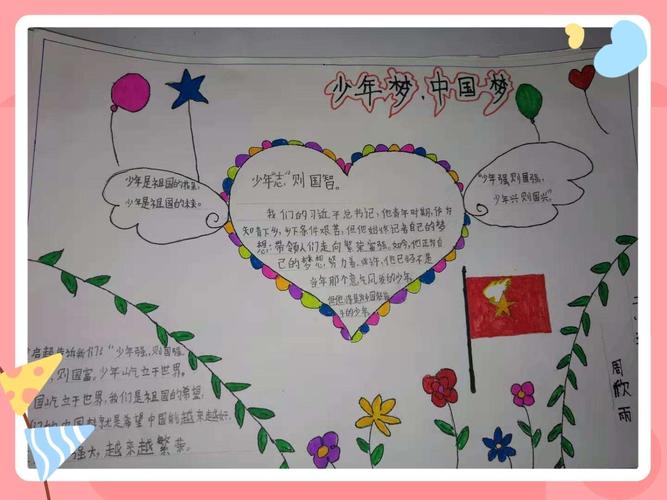 少年梦、中国梦
少年是祖国的花朵,
少年是祖国的未来。
少年“志”,则国智。
我们的习近平总书记,他青年时期,作为
知青下乡,乡下条件艰苦,但他始终记着自己的梦
想:带领人们走向繁荣富强。如今,他正为自
己的梦想努力着。也许,他已经不是
当年那个意气风发的少年,
但他
年的少年。
“少年强,则国强,
少年兴则国兴。”
“少年强,则国强。
,则国富。少年屹立于世界。
国屹立于世界,我们是祖国的希望,
们的中国梦就是希望中国能越来越好,
强大,越来越繁荣。
周歆雨